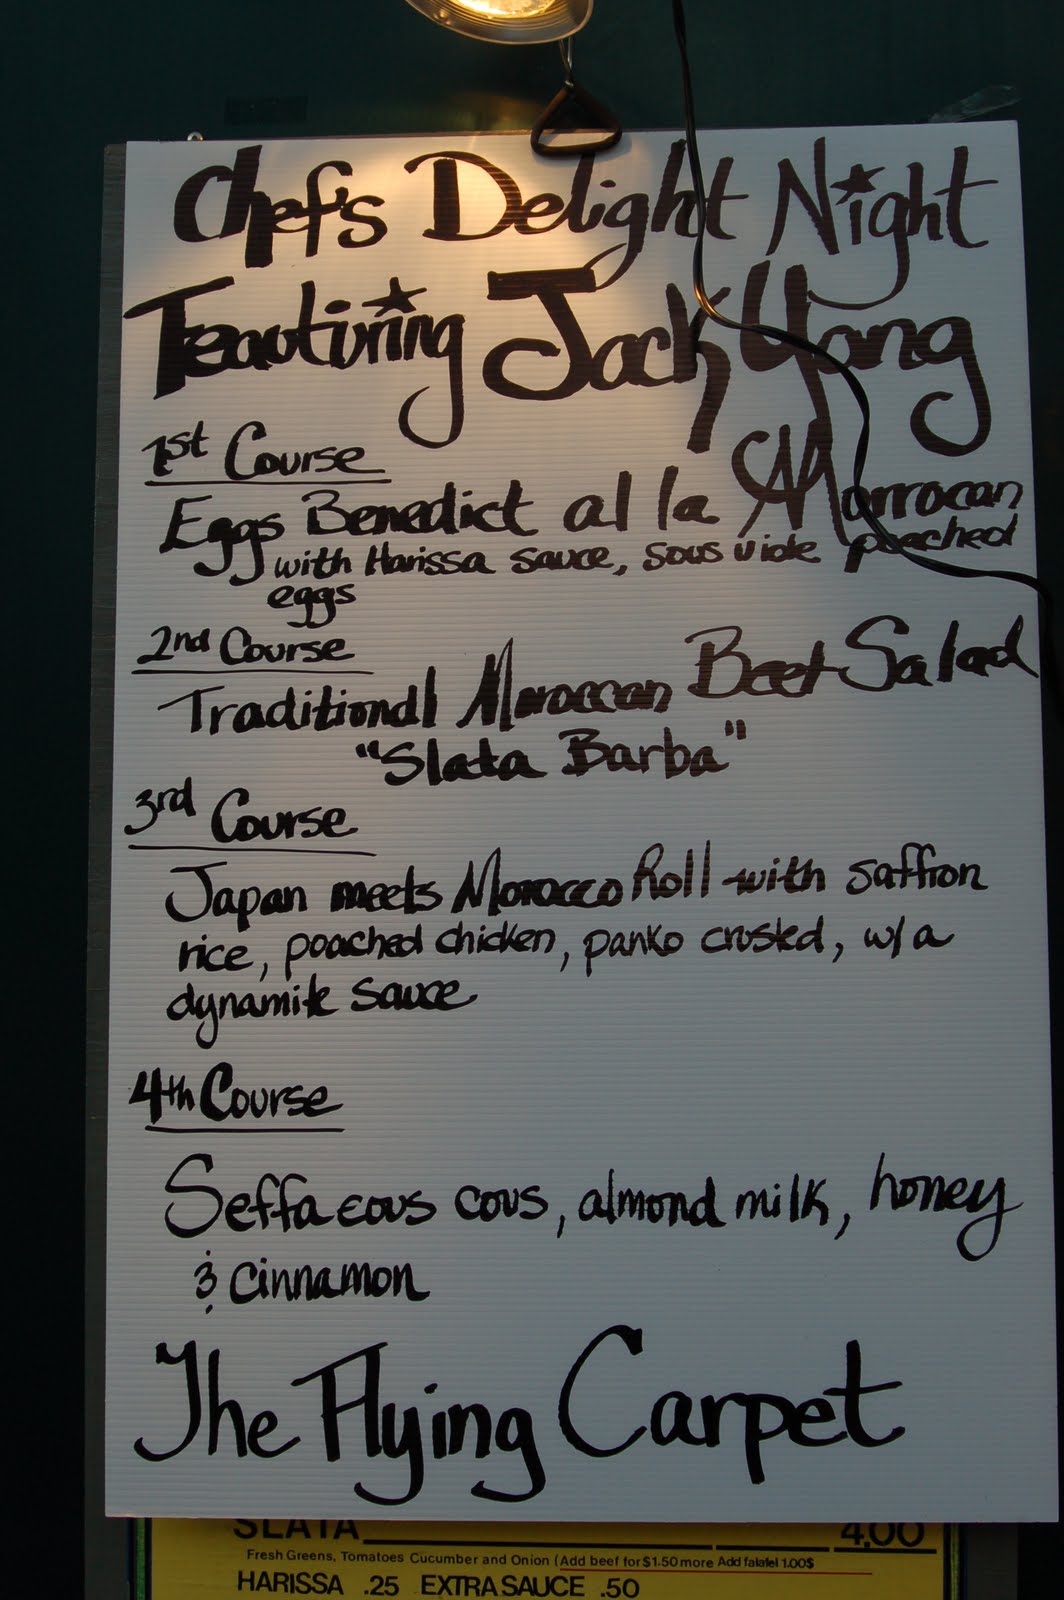 Chef's Delight Night
Feauturing Jack Yang
1st Course
Eggs Benedict al la Morrocan
with Harissa sauce, sous vide poached
eggs
2nd Course
Traditional Moroccan Beet Salad
"Slata Barba"
3rd Course
Japan meets Morocco Roll with saffron
rice, poached chicken, panko crusted, w/a
dynamite sauce
4th Course
Seffa cous cous, almond milk, honey
& cinnamon
The Flying Carpet
SLATA 4.00
Fresh Greens, Tomatoes Cucumber and Onion (Add beef for $1.50 more Add falafel 1.00$
HARISSA .25 EXTRA SAUCE .50